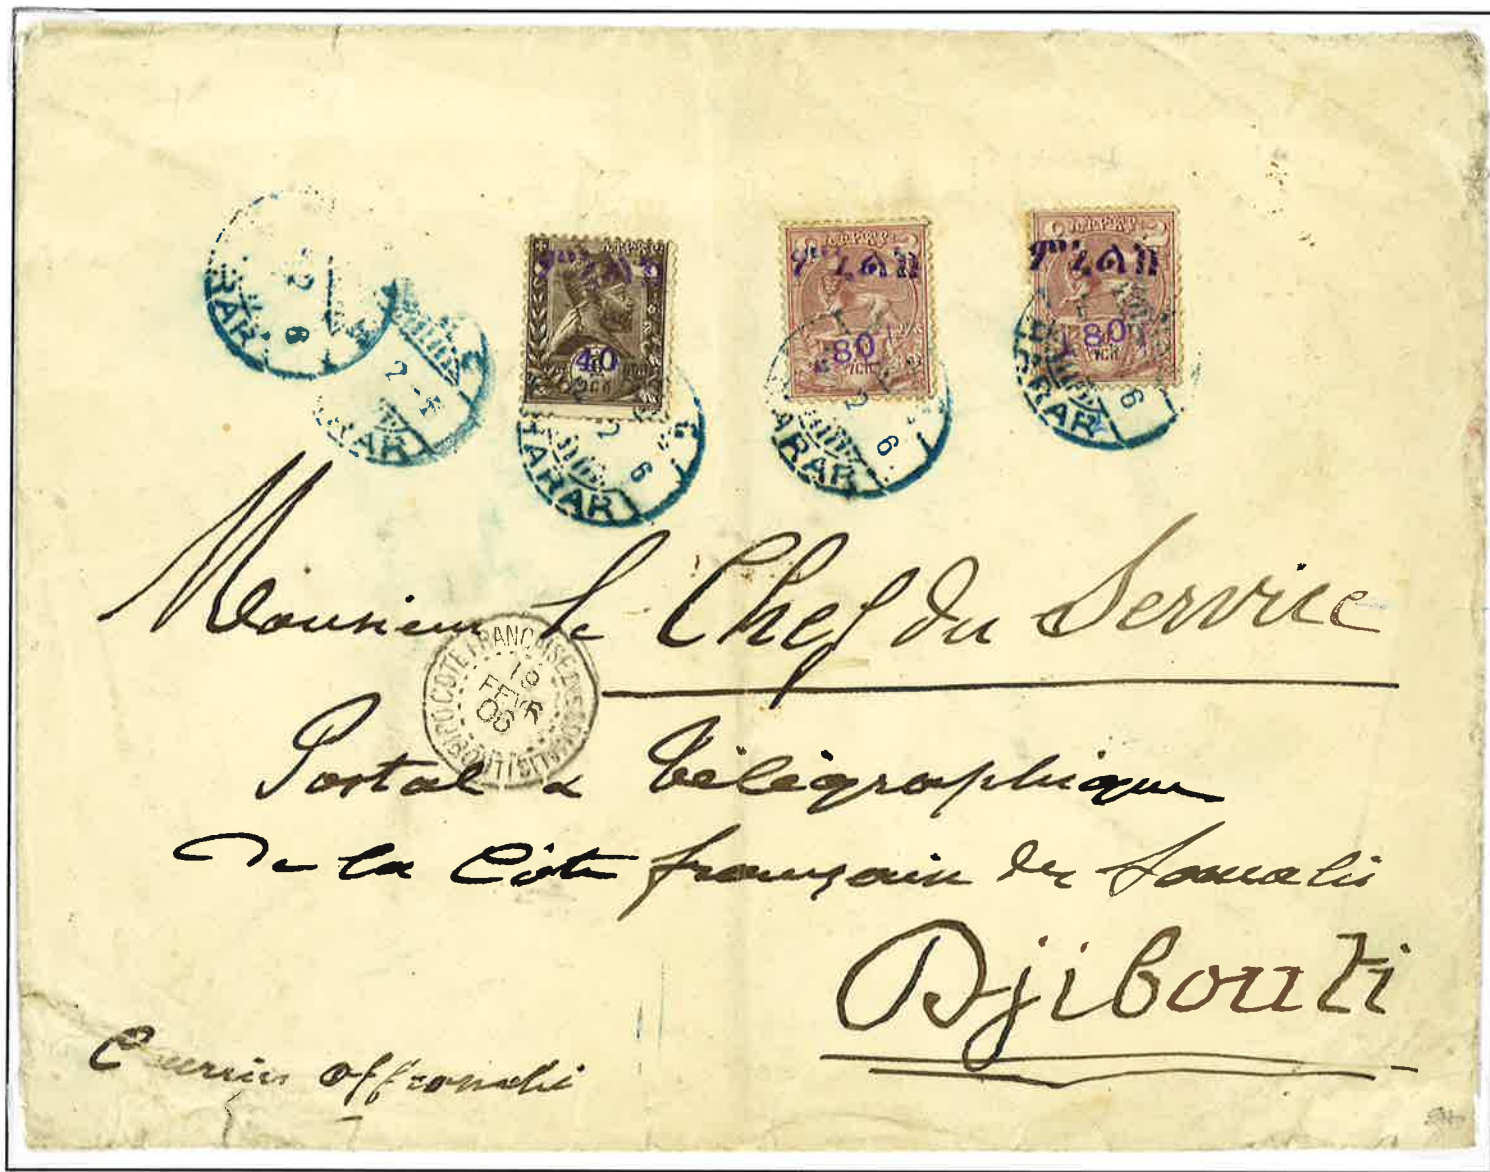 ምኒልክ
40
ምኒልክ
80
ምኒልክ
80
HARAR
2 6
Monsieur le Chef du Service
COTE FRANÇAISE DES SOMALIS
19
FEVR
06
DJIBOUTI
Postal & Télégraphique
de la Côte française des Somalis
Djibouti
Courrier affranchi